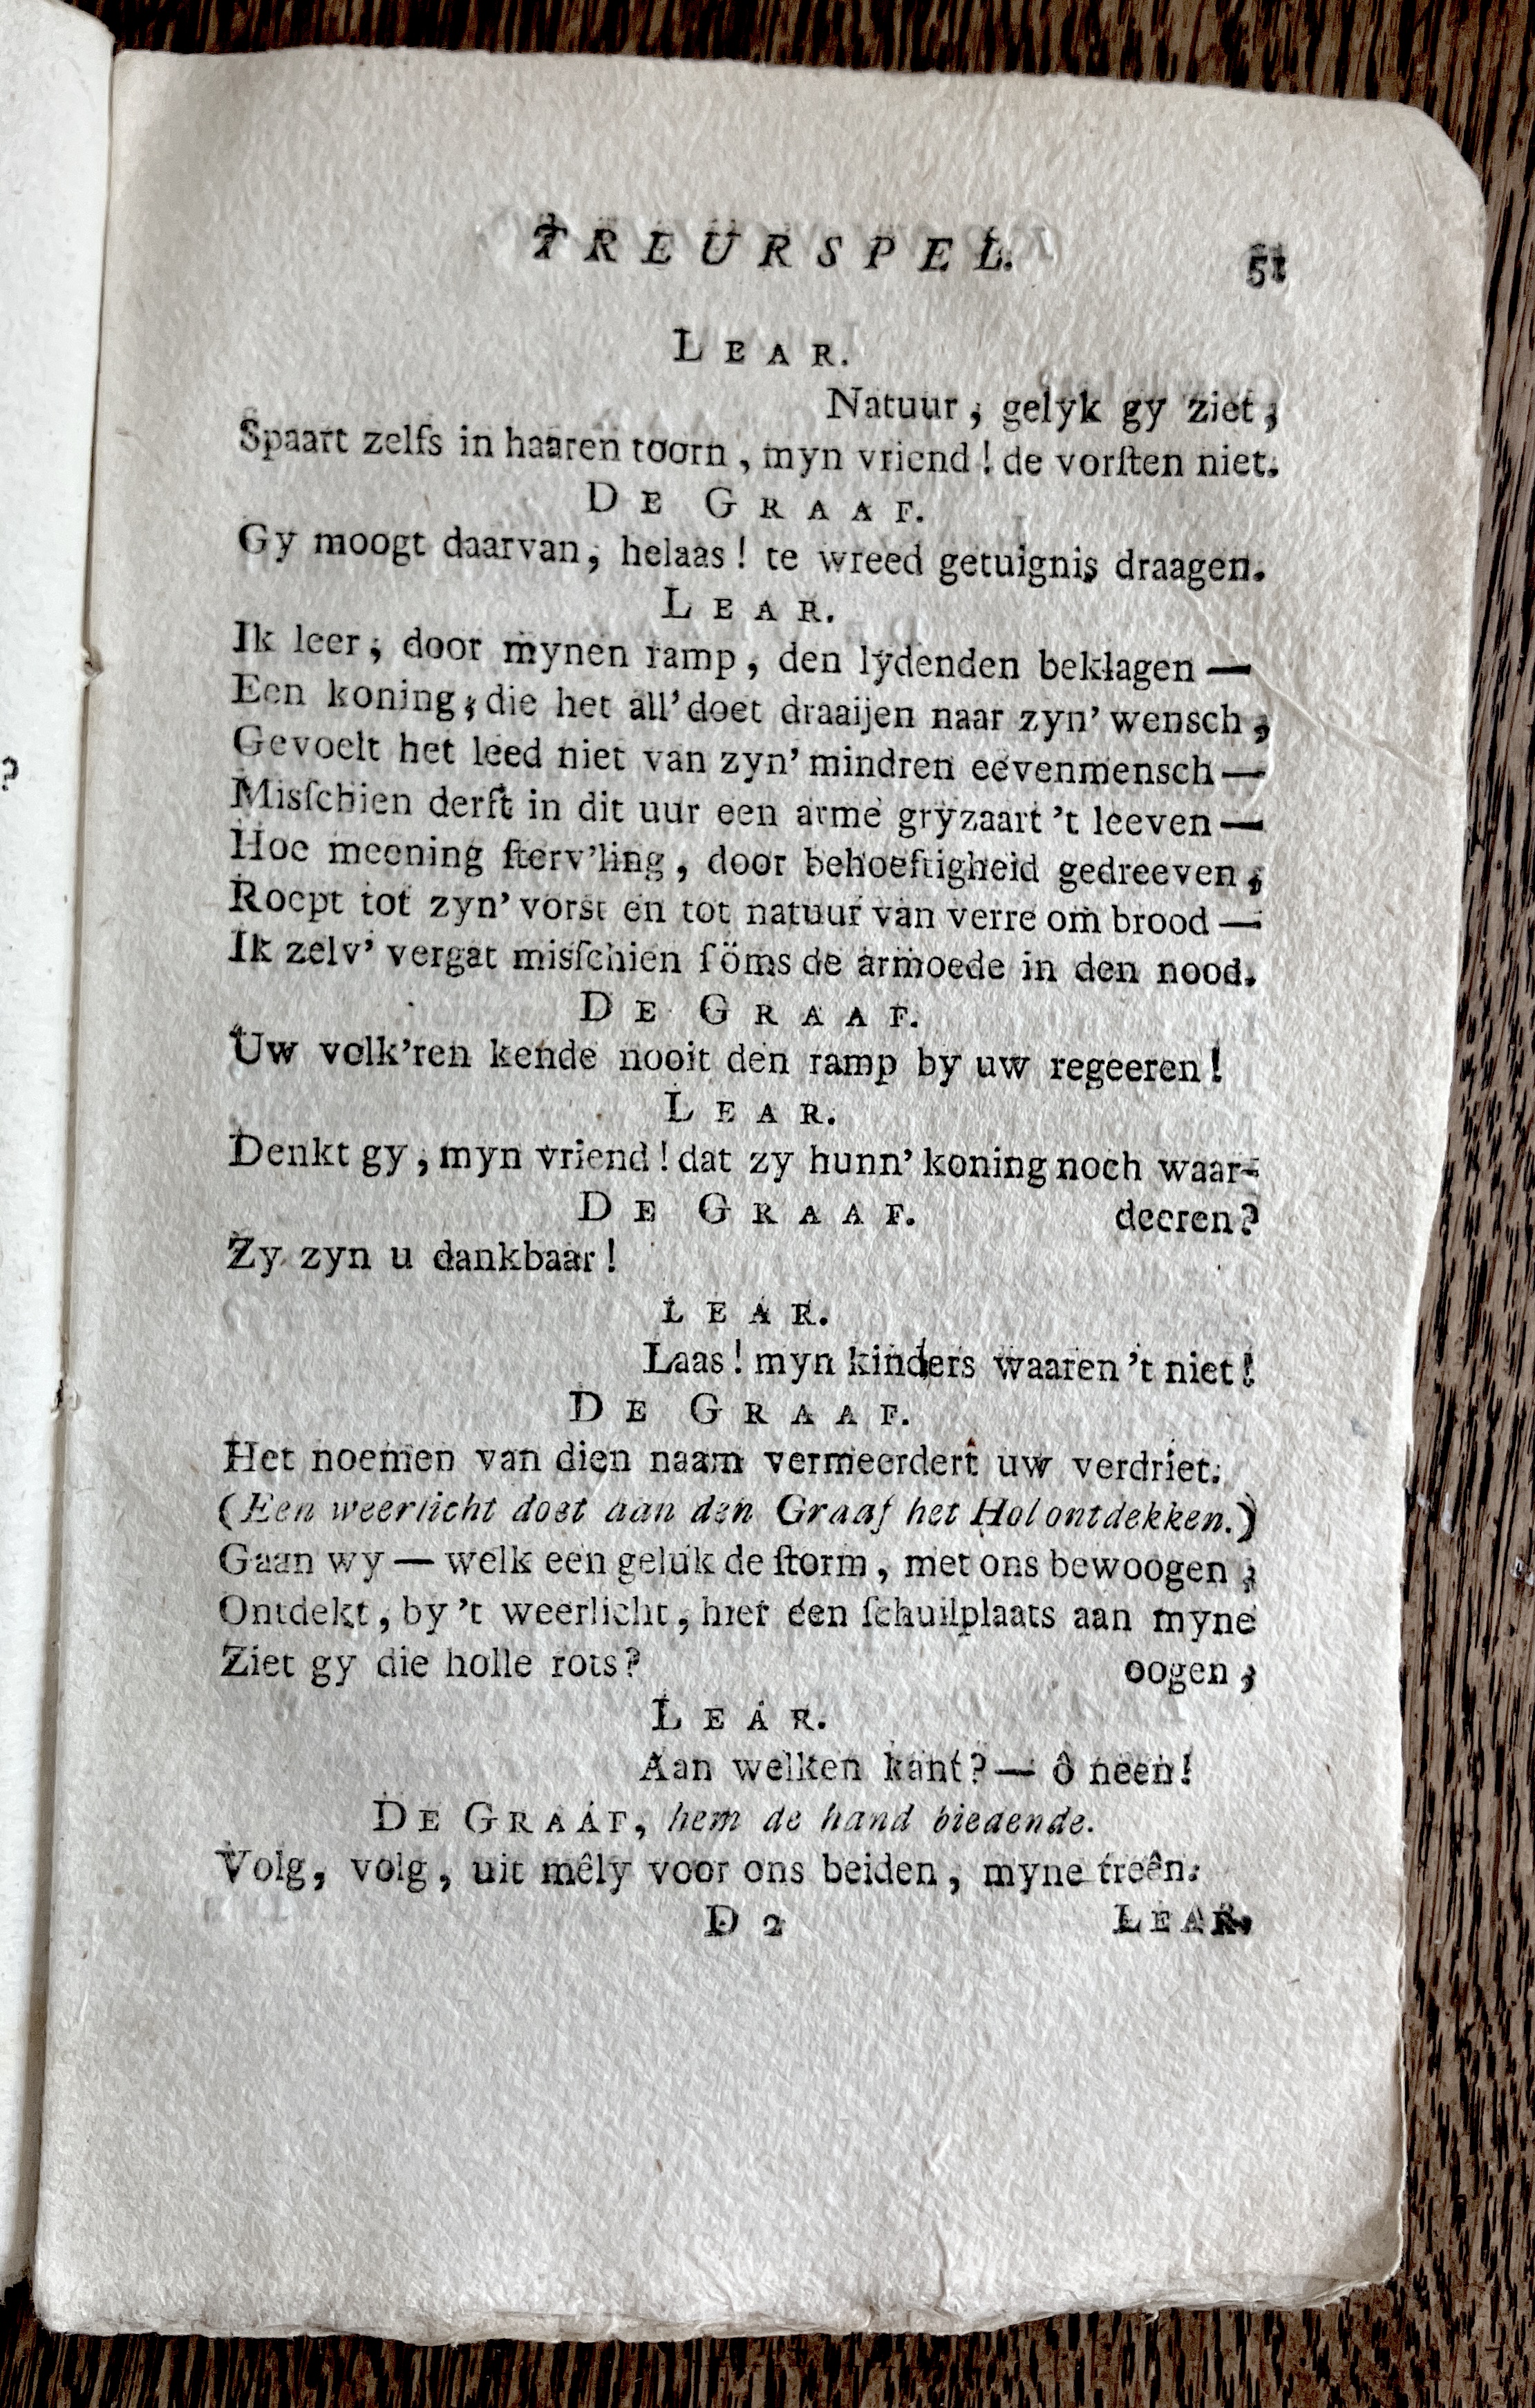 ?
TREURSPEL. 51
LEAR.
Natuur, gelyk gy ziet,
Spaart zelfs in haaren toorn, myn vriend! de vorſten niet.
DE GRAAF.
Gy moogt daarvan, helaas! te wreed getuignis draagen.
LEAR.
Ik leer, door mynen ramp, den lydenden beklagen —
Een koning, die het all' doet draaijen naar zyn' wensch,
Gevoelt het leed niet van zyn' mindren eevenmensch —
Misſchien derft in dit uur een arme gryzaart 't leeven —
Hoe meening ſterv'ling, door behoeftigheid gedreeven,
Roept tot zyn' vorst en tot natuur van verre om brood —
Ik zelv' vergat misſchien ſöms de armoede in den nood.
DE GRAAF.
Uw volk'ren kende nooit den ramp by uw regeeren!
LEAR.
Denkt gy, myn vriend! dat zy hunn' koning noch waar-
DE GRAAF. deeren?
Zy zyn u dankbaar!
LEAR.
Laas! myn kinders waaren 't niet!
DE GRAAF.
Het noemen van dien naam vermeerdert uw verdriet.
(Een weerlicht doet aan den Graaf het Hol ontdekken.)
Gaan wy — welk een geluk de ſtorm, met ons bewoogen,
Ontdekt, by 't weerlicht, hier een ſchuilplaats aan myne
Ziet gy die holle rots? oogen,
LEAR.
Aan welken kant? — ô neen!
DE GRAAF, hem de hand biedende.
Volg, volg, uit mêly voor ons beiden, myne treên.
D 2 LEAR.